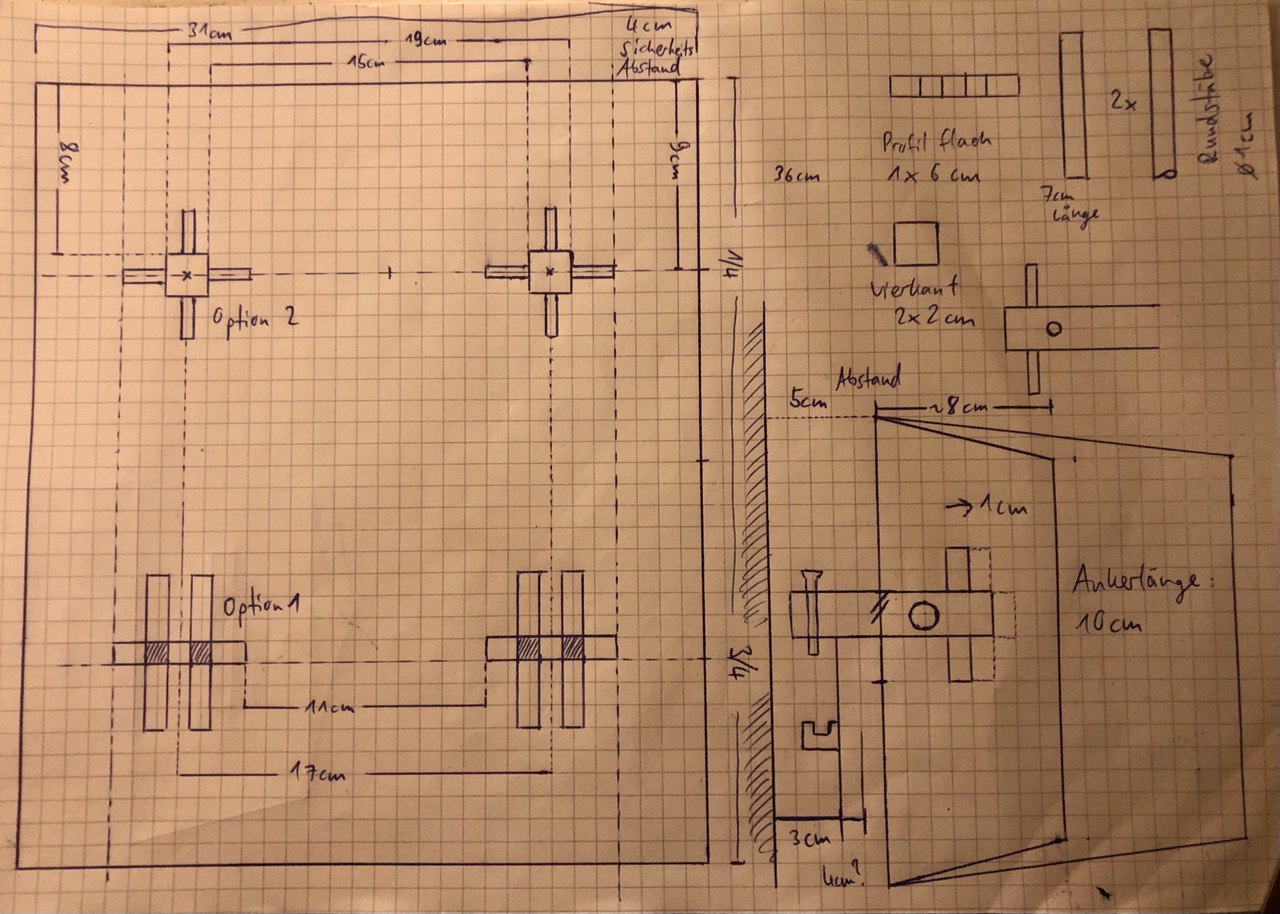 31cm
19cm
4cm
Sicherheits
Abstand
15cm
8cm
9cm
36cm
Profil flach
1x6 cm
2x
Rundstäbe
Ø 1cm
7cm
Länge
1/4
Vierkant
2x2cm
Option 2
Abstand
5cm
~8cm
→1cm
Ankerlänge:
10cm
Option 1
3/4
11cm
17cm
3cm
4cm?